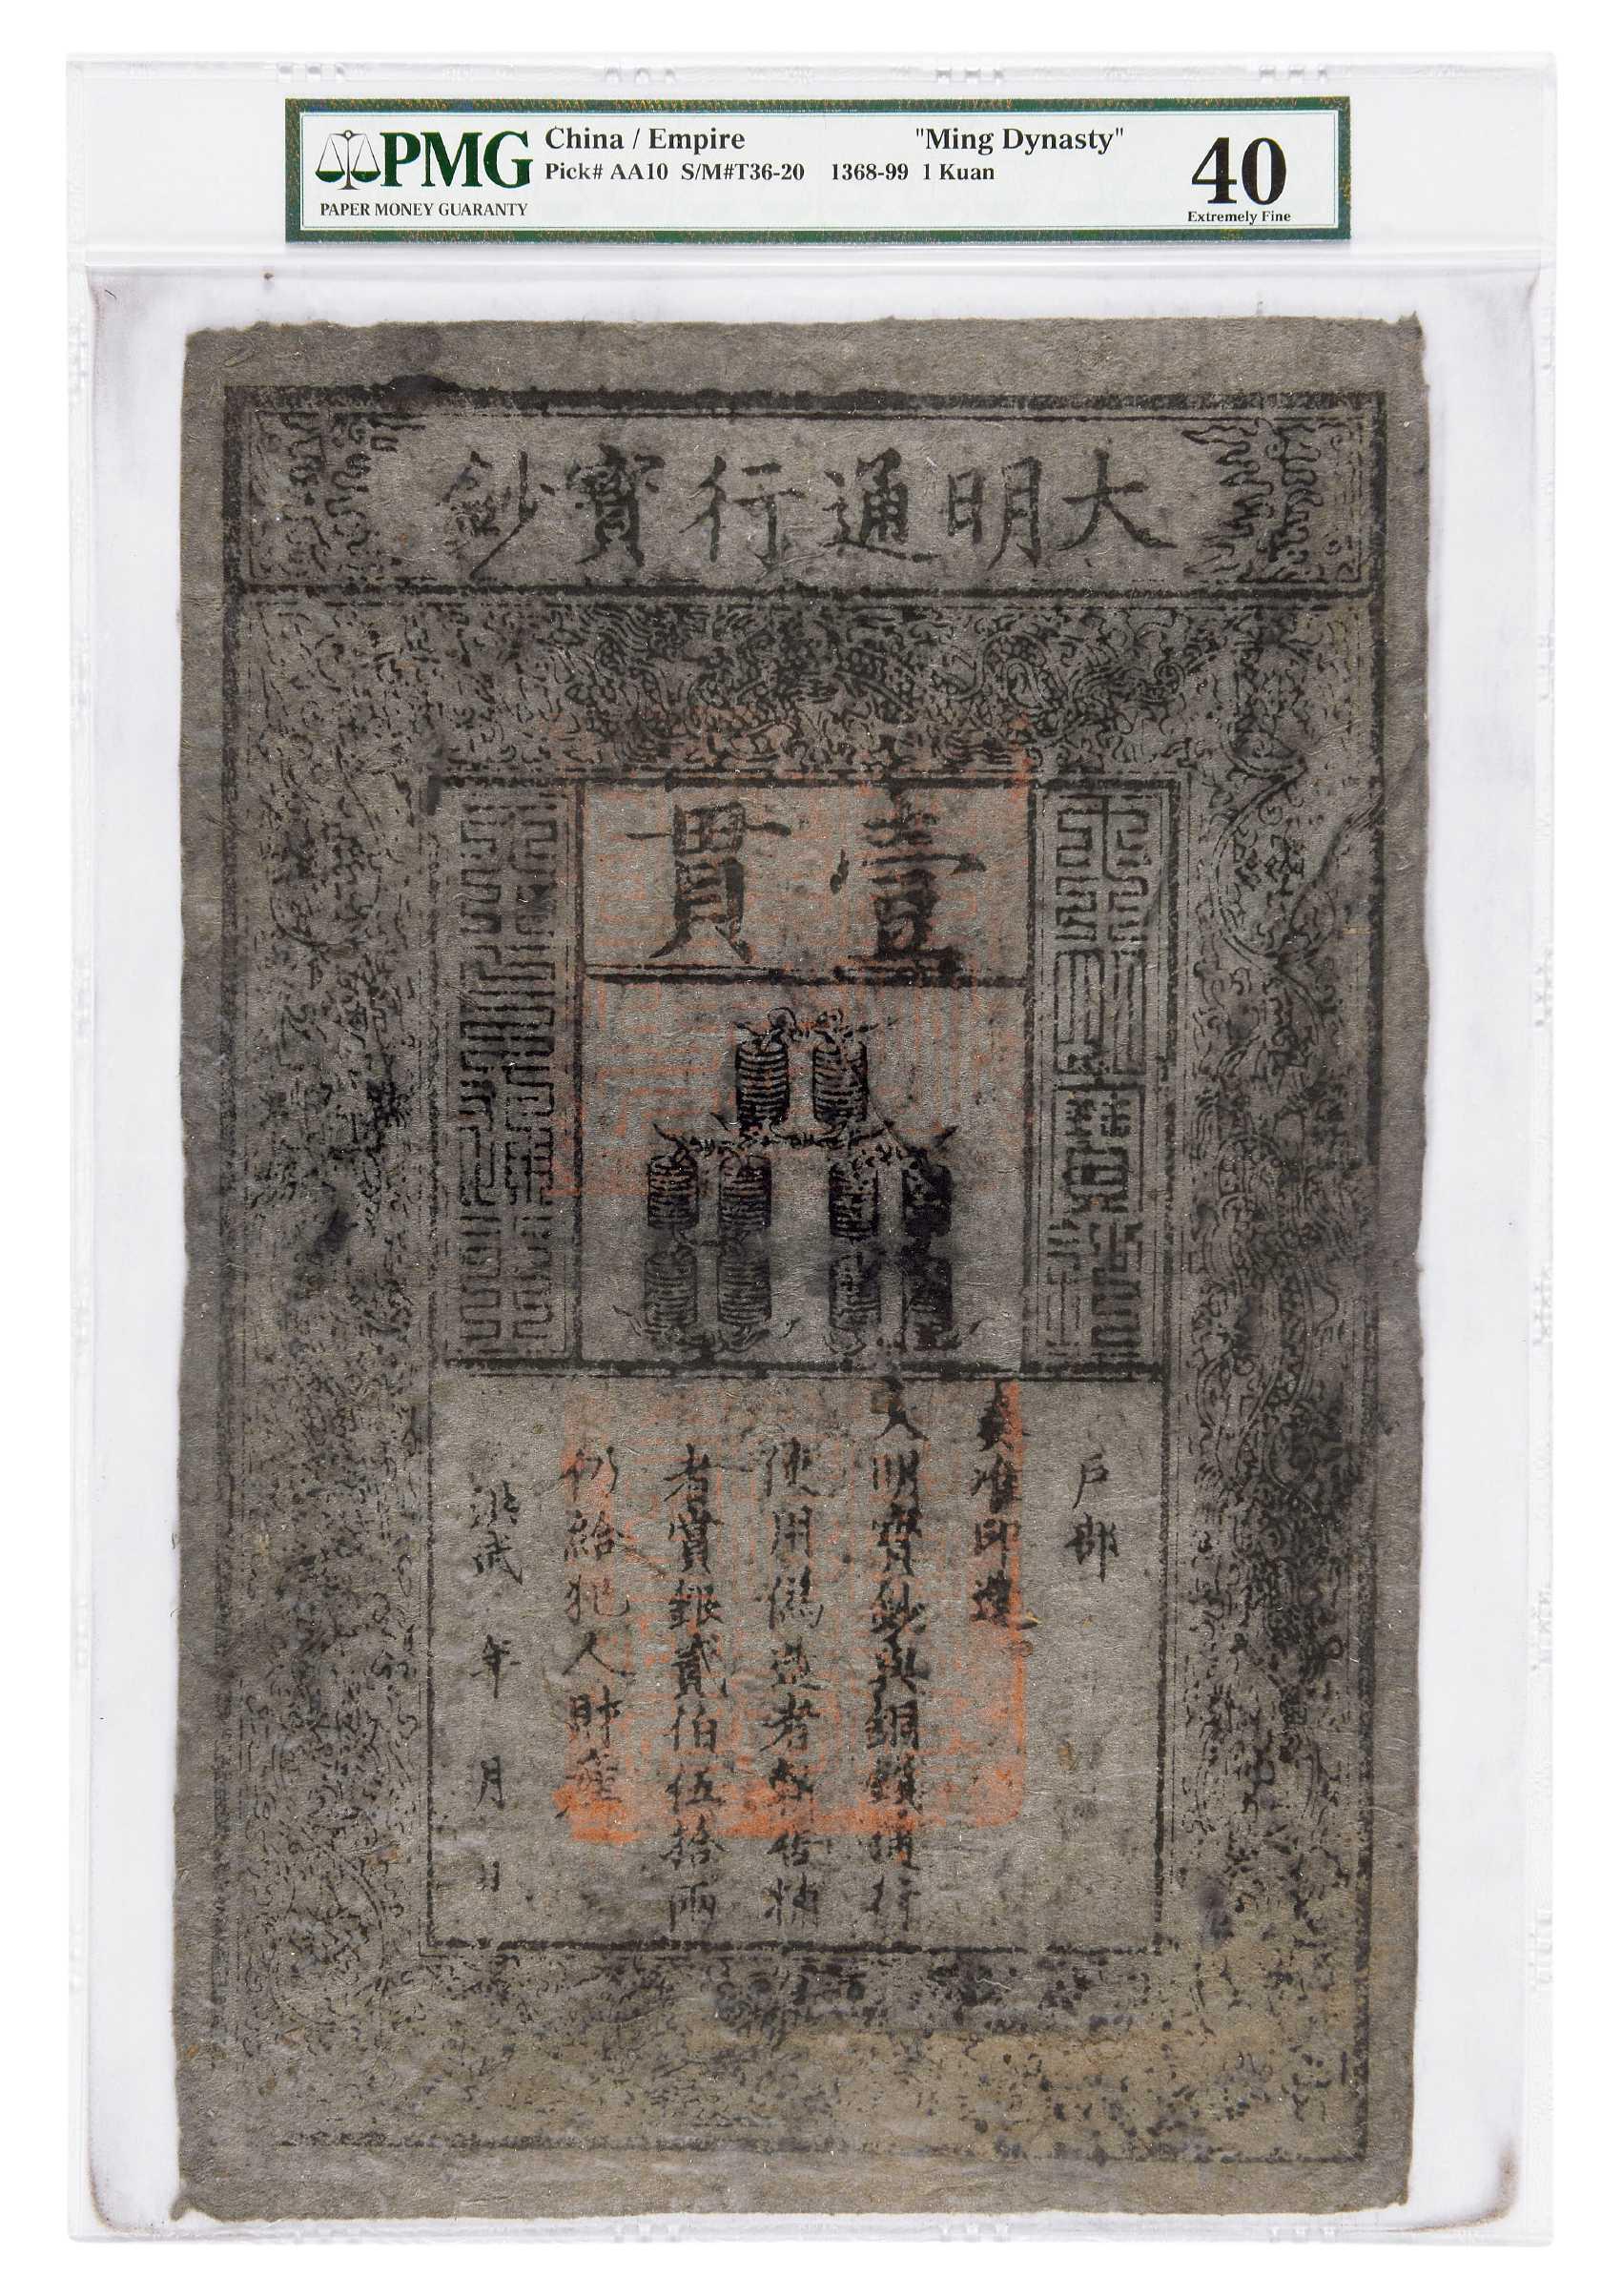 PMG
PAPER MONEY GUARANTY
China / Empire "Ming Dynasty"
Pick# AA10 S/M#T36-20 1368-99 1 Kuan
40
Extremely Fine
大明通行寶鈔
壹貫
戶部
奏准印造
大明寶鈔與銅錢通行
使用僞造者斬告捕
者賞銀貳伯伍拾兩
仍給犯人財產
洪武 年 月 日